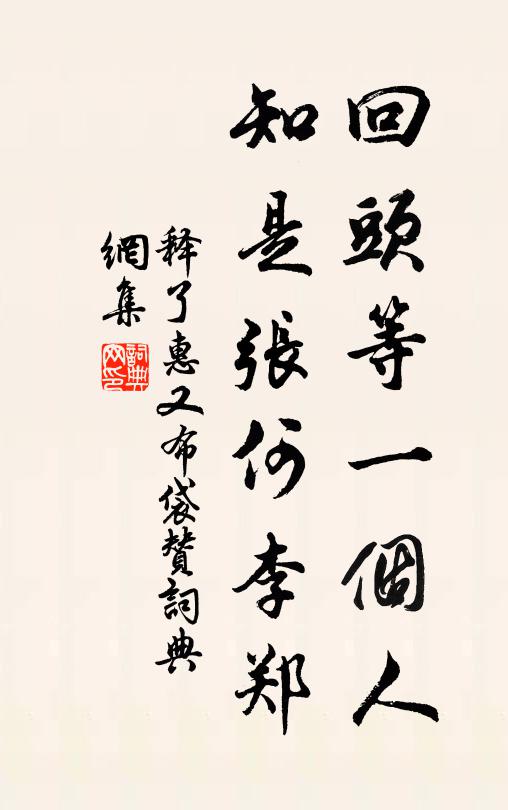 回頭等一個人
知是張何李郑
释了惠又布袋贊詞典
網集
詞典網印